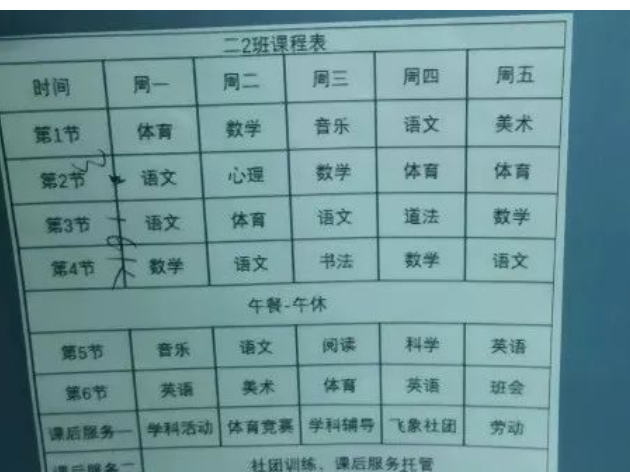 二2班课程表
时间 周一 周二 周三 周四 周五
第1节 体育 数学 音乐 语文 美术
第2节 语文 心理 数学 体育 体育
第3节 语文 体育 语文 道法 数学
第4节 数学 语文 书法 数学 语文
午餐-午休
第5节 音乐 语文 阅读 科学 英语
第6节 英语 美术 体育 英语 班会
课后服务一 学科活动 体育竞赛 学科辅导 飞象社团 劳动
课后服务二 社团训练、课后服务托管